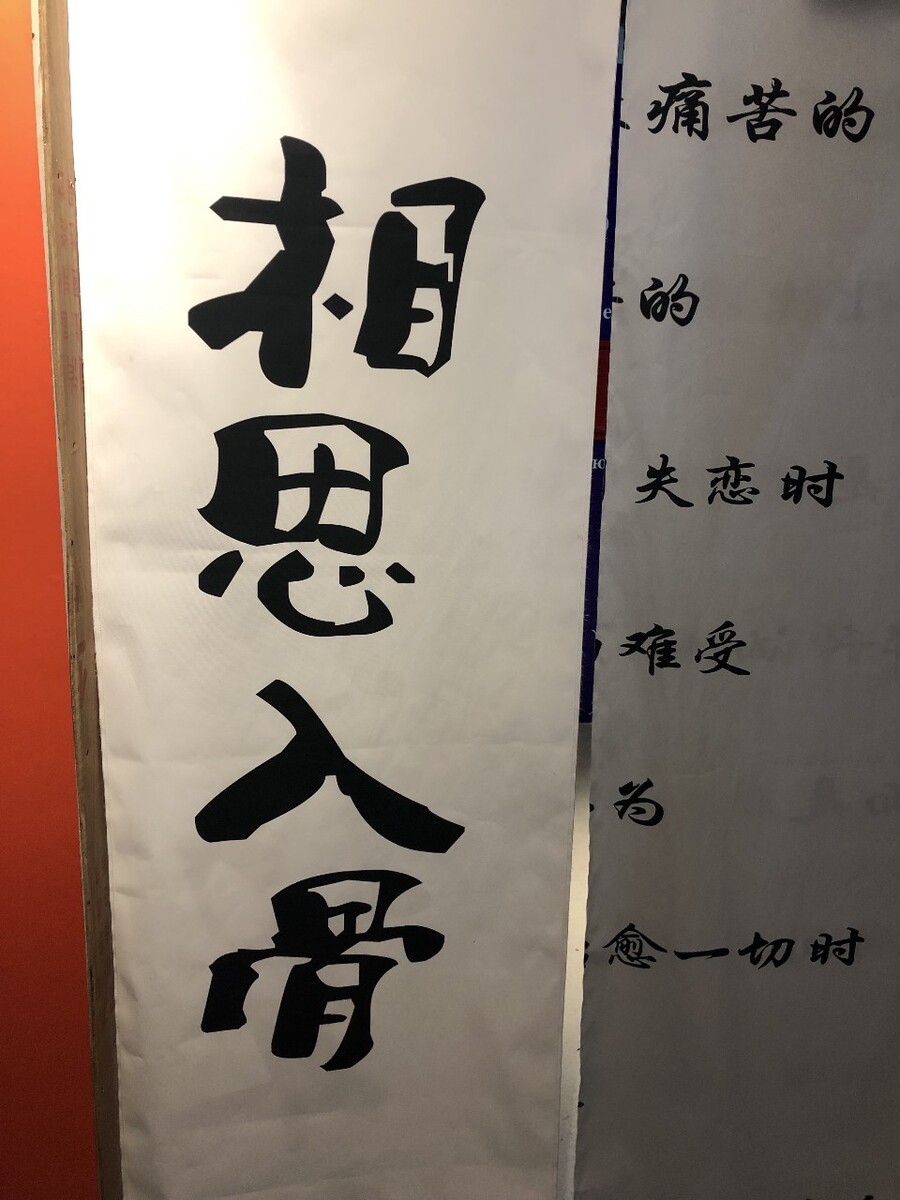 相思入骨
痛苦的
的
失恋时
难受
为
愈一切时